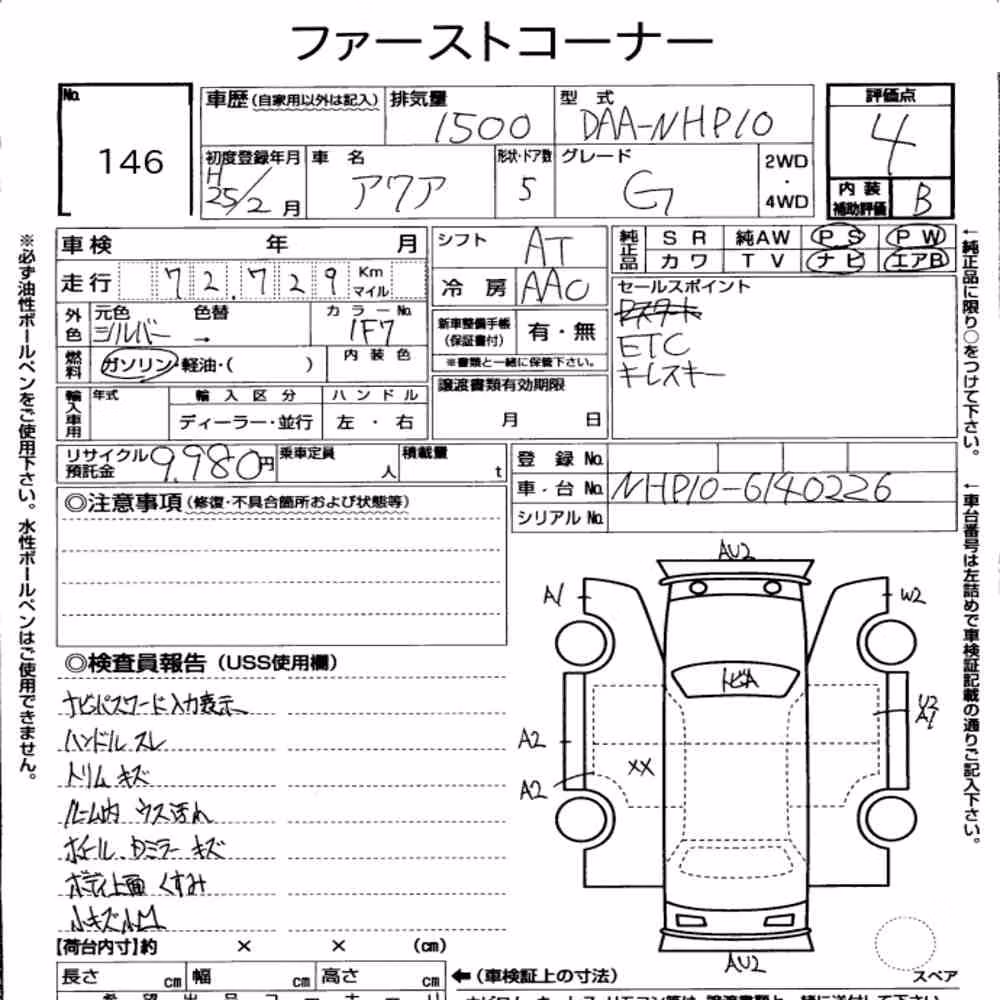 ファーストコーナー
No. 146
車歴 (自家用以外は記入) 排気量 1500 型式 DAA-NHP10
評価点 4
初度登録年月 H25/2月 車名 アクア 形状・ドア数 5 グレード G 2WD・4WD
内装補助評価 B
車検 年 月 シフト AT
純正品 SR 純AW PS PW
カワ TV ナビ エアB
走行 72,729 Km マイル
冷房 AAC
セールスポイント
Pスタート
ETC
キーレスキー
外色 元色 シルバー 色替 → カラーNo. 1F7
新車整備手帳 (保証書付) 有・無
※書類と一緒に保管下さい。
燃料 ガソリン・軽油・( ) 内装色
譲渡書類有効期限
月 日
輸入車用 年式 輸入区分 ハンドル
ディーラー・並行 左・右
リサイクル預託金 9,980円 乗車定員 人 積載量 t
登録No.
車・台No. NHP10-6140226
シリアルNo.
◎注意事項 (修復・不具合箇所および状態等)
◎検査員報告 (USS使用欄)
ナビパスワード入力表示
ハンドル スレ
トリム キズ
ルーム内 ウス汚れ
ホイール、Dミラー キズ
ボディ上面 くすみ
小キズ小凹
AU2
A1
W2
トビA
U2
A1
A2
XX
A2
AU2
スペア
【荷台内寸】約 × × (cm)
長さ cm 幅 cm 高さ cm ←(車検証上の寸法)
※必ず油性ボールペンをご使用下さい。水性ボールペンはご使用できません。
←純正品に限り○をつけて下さい。
←車台番号は左詰めで車検証記載の通りご記入下さい。